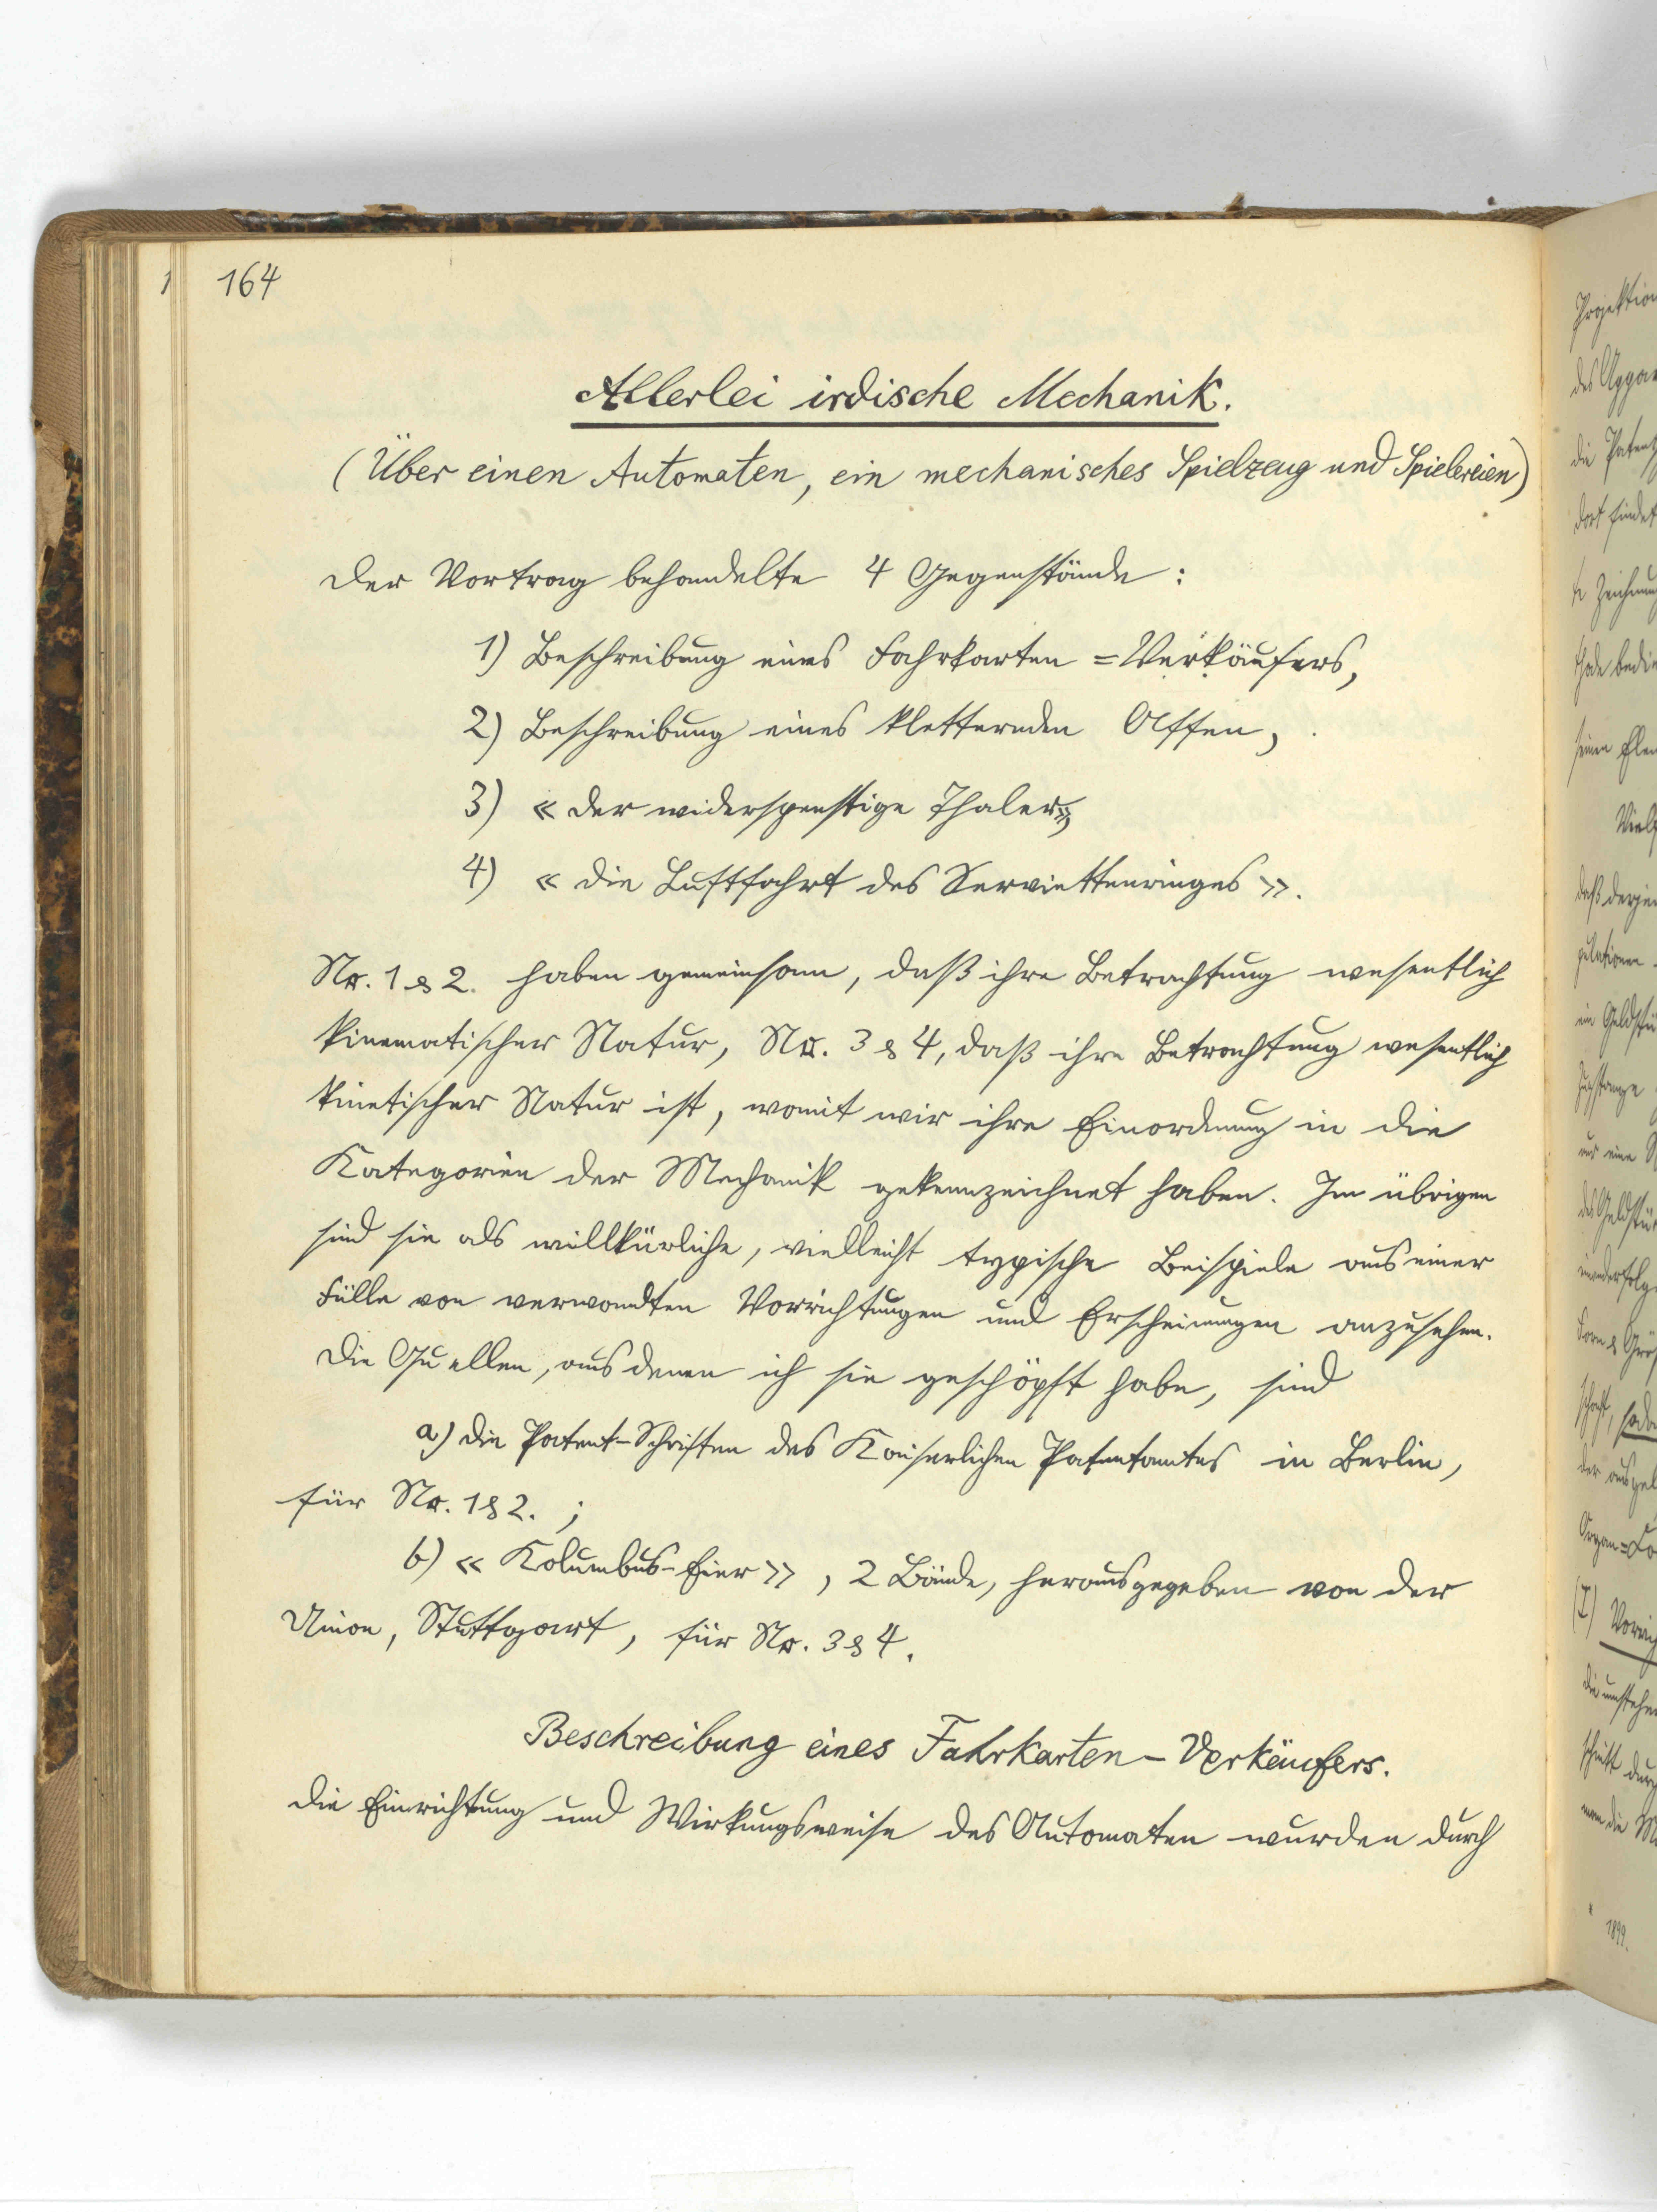 164
Allerlei irdische Mechanik.
(Über einen Automaten, ein mechanisches Spielzeug und Spielereien)
Der Vortrag behandelte 4 Gegenstände:
1) Beschreibung eines Fahrkarten=Verkäufers,
2) Beschreibung eines kletternden Affen,
3) « Der widerspenstige Thaler»,
4) « Die Luftfahrt des Serviettenringes ».
Nr. 1 & 2. haben gemeinsam, daß ihre Betrachtung wesentlich
kinematischer Natur, Nr. 3 & 4, daß ihre Betrachtung wesentlich
kinetischer Natur ist, womit wir ihre Einordnung in die
Kategorien der Mechanik gekennzeichnet haben. Im übrigen
sind sie als willkürliche, vielleicht typische Beispiele aus einer
Fülle von verwandten Vorrichtungen und Erscheinungen anzusehen.
Die Quellen, aus denen ich sie geschöpft habe, sind
a) die Patent-Schriften des Kaiserlichen Patentamtes in Berlin,
für Nr. 1 & 2. ;
b) « Kolumbus-Eier », 2 Bände, herausgegeben von der
Union, Stuttgart, für Nr. 3 & 4.
Beschreibung eines Fahrkarten-Verkäufers.
Die Einrichtung und Wirkungsweise des Automaten wurden durch